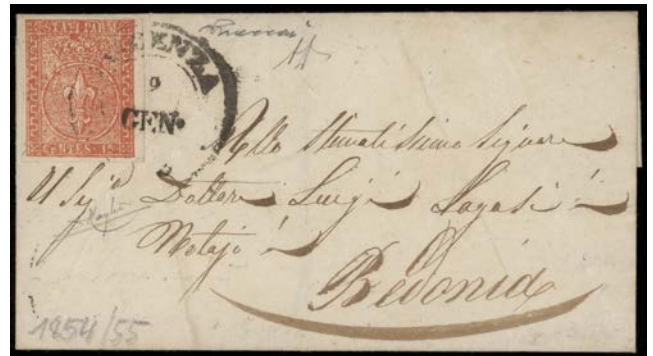 STATI PARM
CENZA
9
GEN.
CENTES 15
Allo Stimatissimo Signore
Il Sig.e Dottore Luigi Lagasi
Notajo à
Bedonia
1854/55